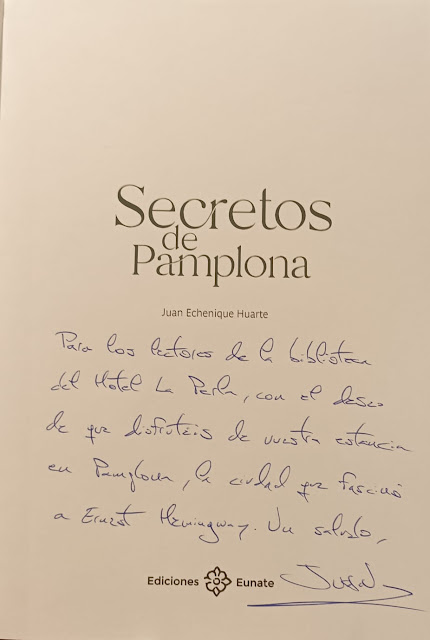 Secretos
de
Pamplona
Juan Echenique Huarte
Para los lectores de la biblioteca
del Hotel La Perla, con el deseo
de que disfrutéis de vuestra estancia
en Pamplona, la ciudad que fascinó
a Ernest Hemingway. Un saludo,
Ediciones Eunate
Juan